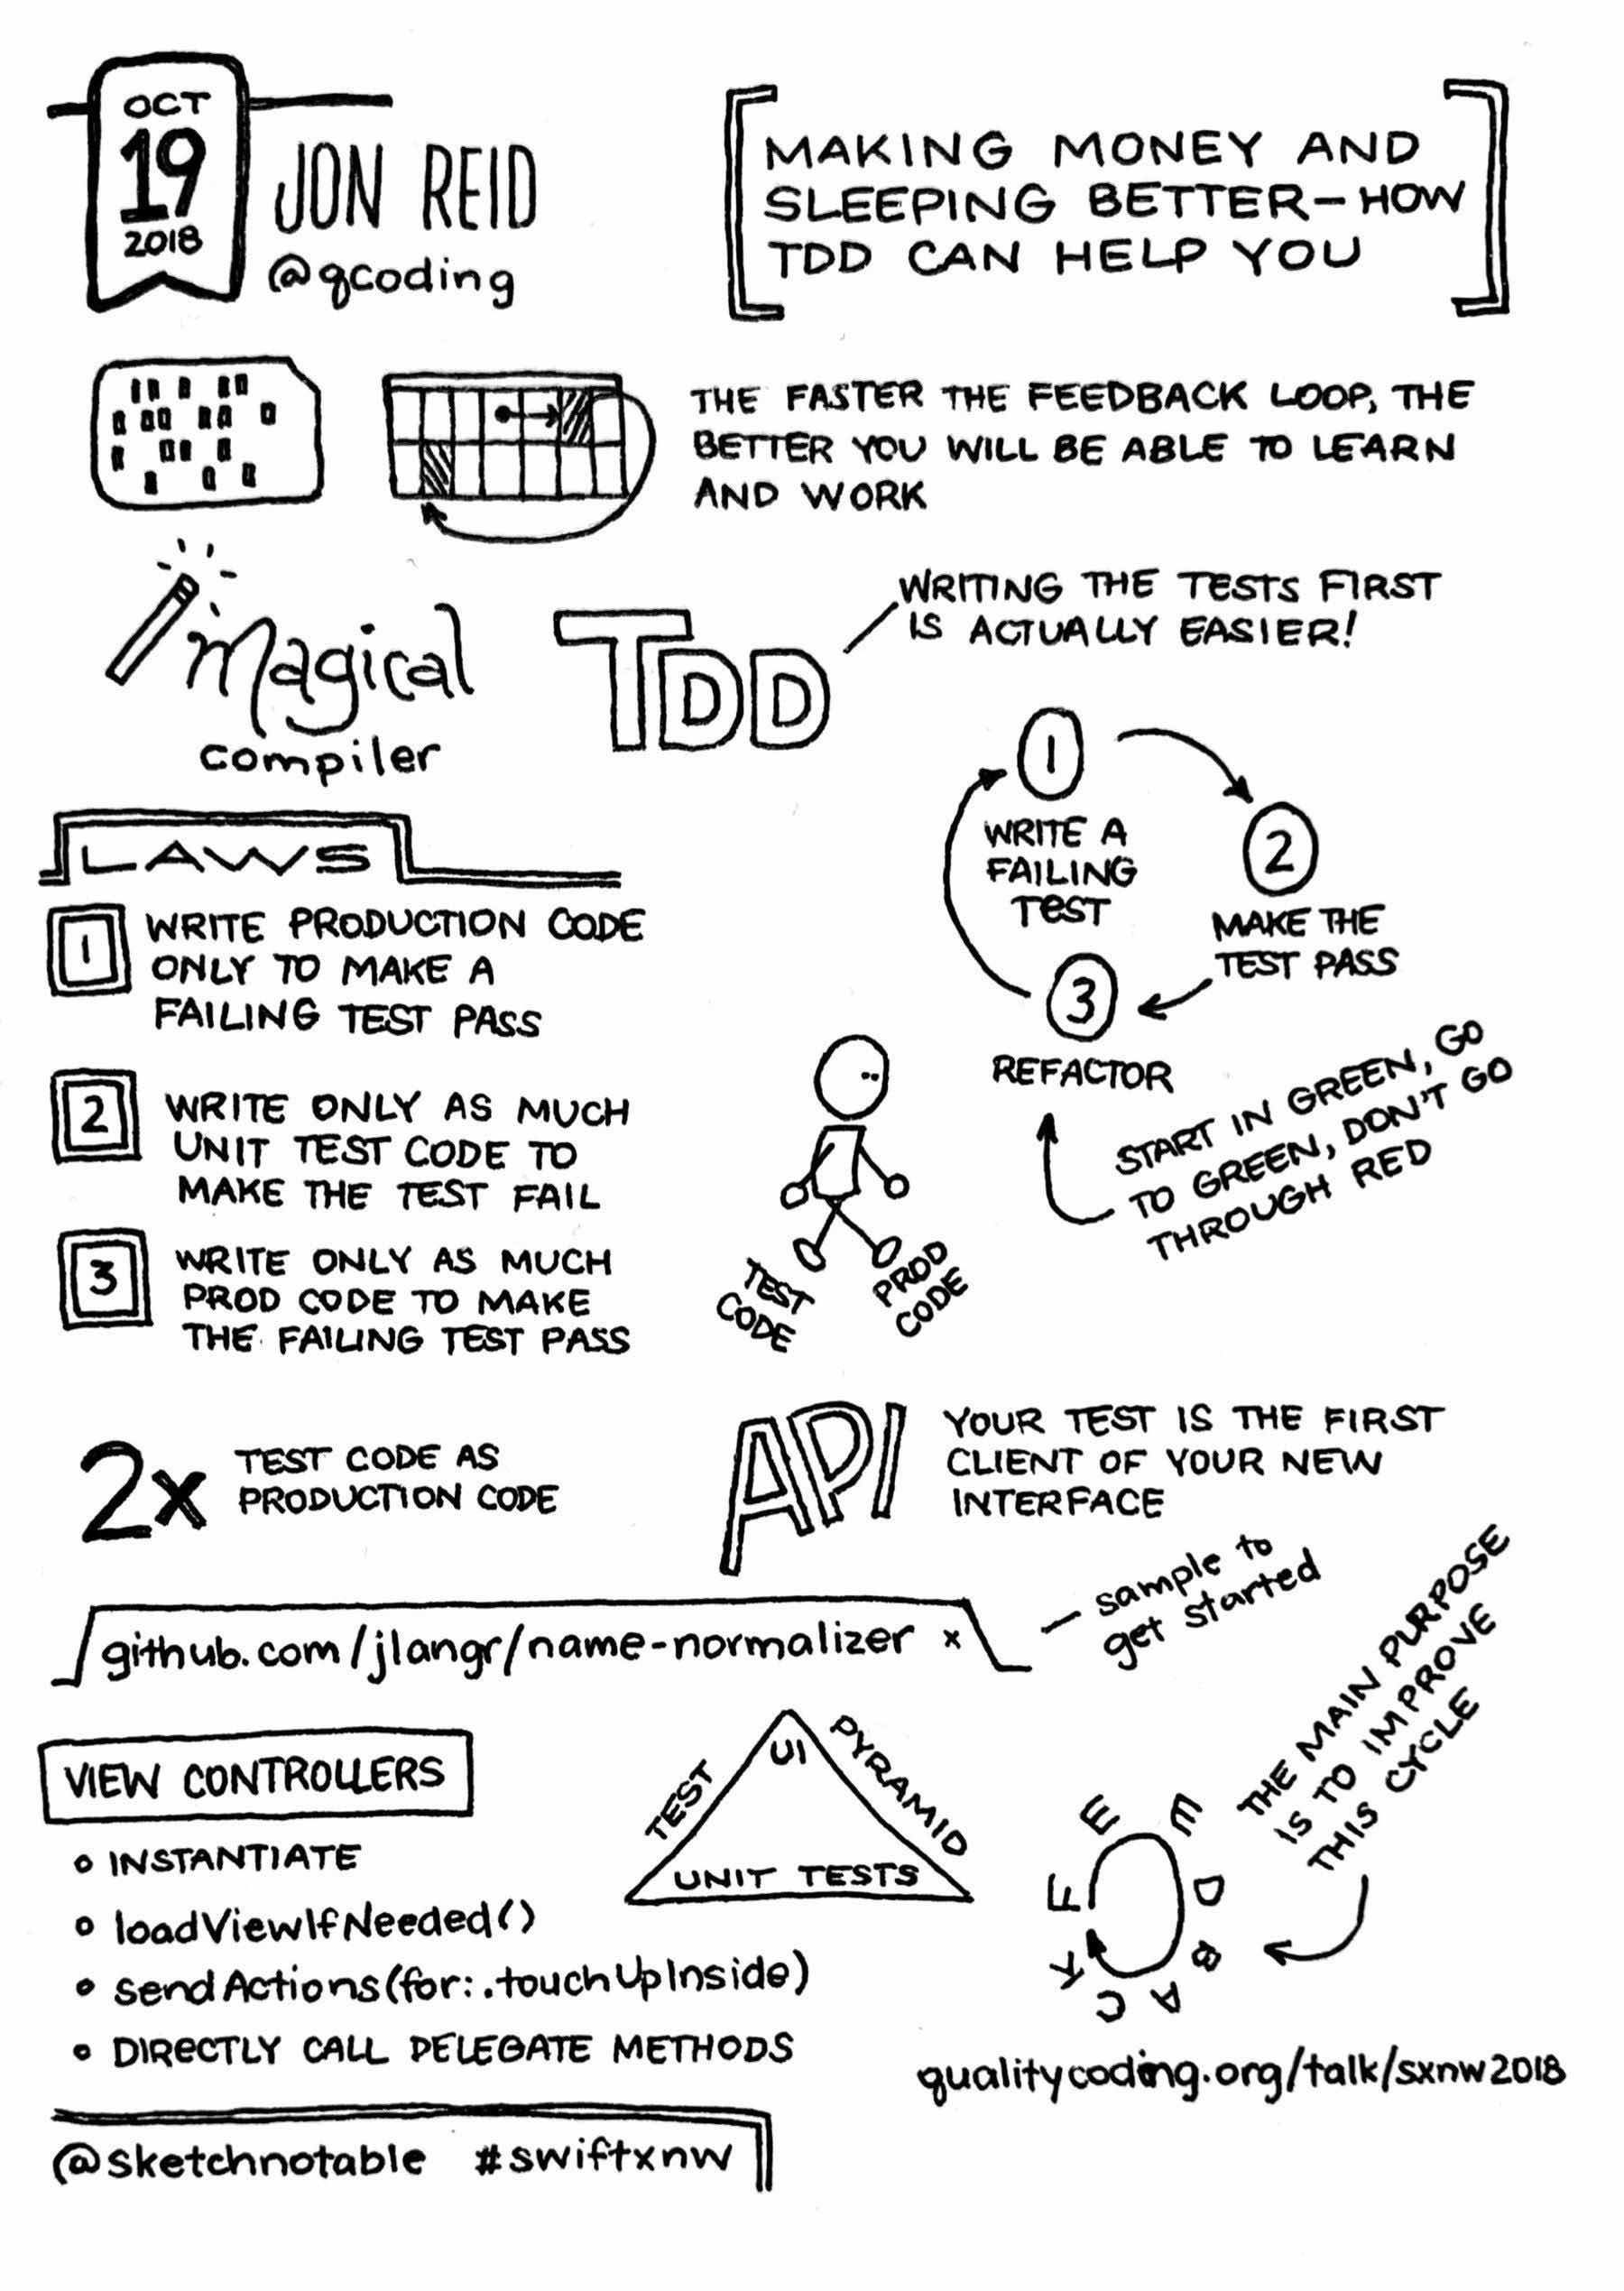 OCT
19
2018
JON REID
@qcoding
MAKING MONEY AND
SLEEPING BETTER—HOW
TDD CAN HELP YOU
THE FASTER THE FEEDBACK LOOP, THE
BETTER YOU WILL BE ABLE TO LEARN
AND WORK
Magical
compiler
TDD
WRITING THE TESTS FIRST
IS ACTUALLY EASIER!
1
WRITE A
FAILING
TEST
2
MAKE THE
TEST PASS
3
REFACTOR
START IN GREEN, GO
TO GREEN, DON'T GO
THROUGH RED
LAWS
1
WRITE PRODUCTION CODE
ONLY TO MAKE A
FAILING TEST PASS
2
WRITE ONLY AS MUCH
UNIT TEST CODE TO
MAKE THE TEST FAIL
3
WRITE ONLY AS MUCH
PROD CODE TO MAKE
THE FAILING TEST PASS
TEST
CODE
PROD
CODE
2x
TEST CODE AS
PRODUCTION CODE
API
YOUR TEST IS THE FIRST
CLIENT OF YOUR NEW
INTERFACE
github.com/jlangr/name-normalizer x
sample to
get started
VIEW CONTROLLERS
INSTANTIATE
loadViewIfNeeded()
sendActions(for:.touchUpInside)
DIRECTLY CALL DELEGATE METHODS
TEST PYRAMID
UI
UNIT TESTS
THE MAIN PURPOSE
IS TO IMPROVE
THIS CYCLE
FEEDBACK
qualitycoding.org/talk/sxnw2018
@sketchnotable #swiftxnw